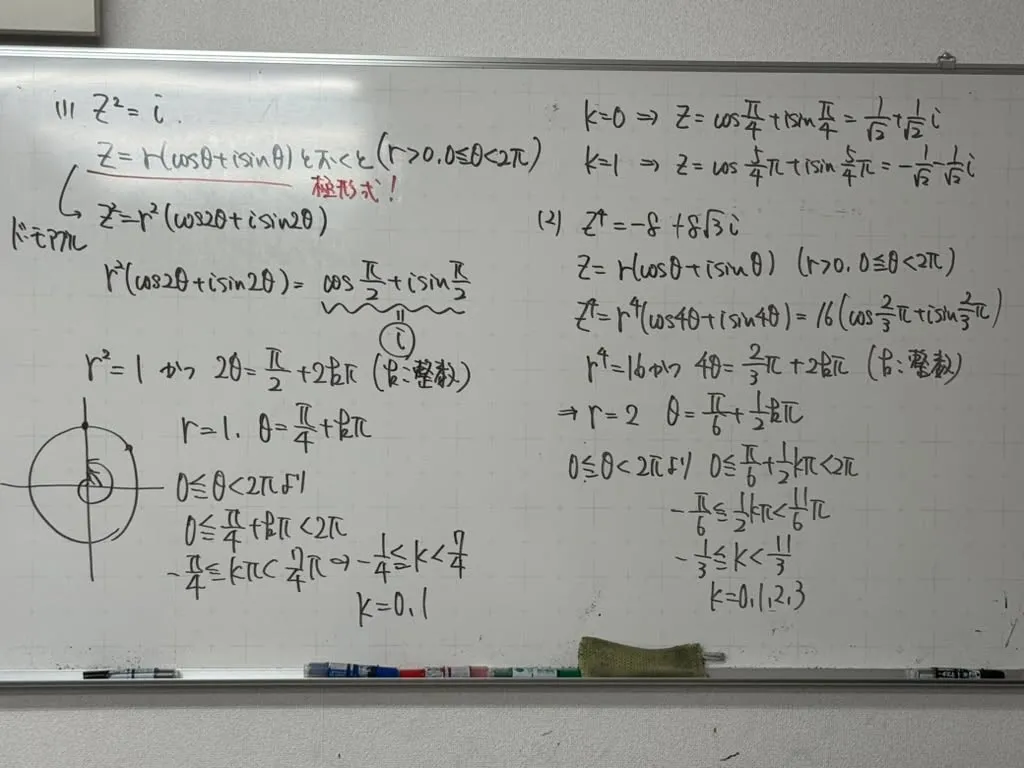 (1) z² = i.
z = r(cosθ + isinθ) とおくと (r>0, 0≦θ<2π)
極形式!
ド・モアブル
z² = r²(cos2θ + isin2θ)
r²(cos2θ + isin2θ) = cos π/2 + isin π/2
=
i
r² = 1 かつ 2θ = π/2 + 2kπ (k:整数)
r = 1. θ = π/4 + kπ
0≦θ<2πより
0≦π/4 + kπ<2π
-π/4≦kπ<7/4π ⇒ -1/4≦k<7/4
k=0,1
k=0 ⇒ z = cos π/4 + isin π/4 = 1/√2 + 1/√2 i
k=1 ⇒ z = cos 5/4π + isin 5/4π = -1/√2 - 1/√2 i
(2) z⁴ = -8 + 8√3 i
z = r(cosθ + isinθ) (r>0, 0≦θ<2π)
z⁴ = r⁴(cos4θ + isin4θ) = 16(cos 2/3π + isin 2/3π)
r⁴ = 16 かつ 4θ = 2/3π + 2kπ (k:整数)
⇒ r = 2 θ = π/6 + 1/2kπ
0≦θ<2πより 0≦π/6 + 1/2kπ<2π
-π/6≦1/2kπ<11/6π
-1/3≦k<11/3
k=0,1,2,3